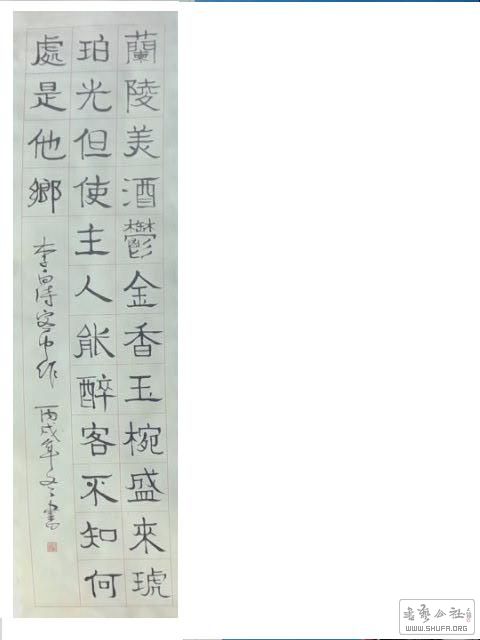 蘭陵美酒鬱金香玉椀盛來琥
珀光但使主人能醉客不知何
處是他鄉
李白詩客中作 丙戌年冬書
书艺公社
WWW.SHUFA.ORG